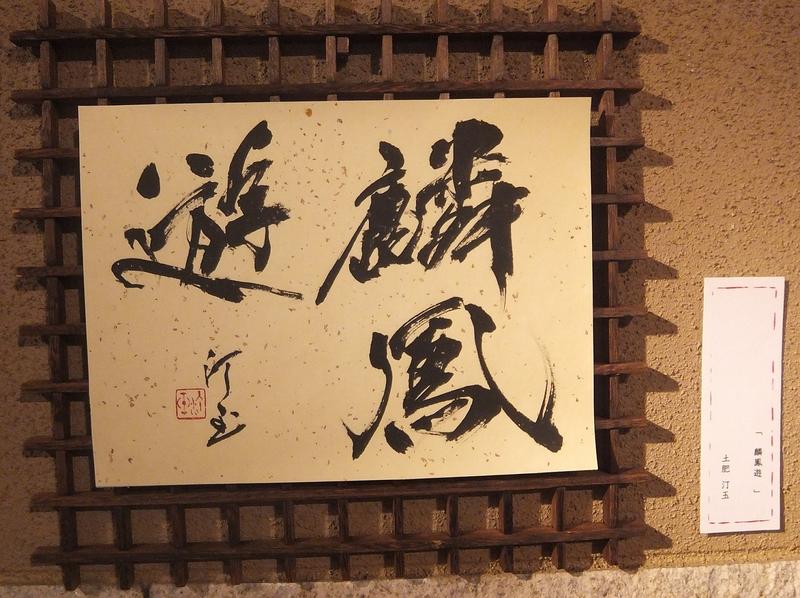 麟鳳
遊
汀玉
「麟鳳遊」
土肥 汀玉